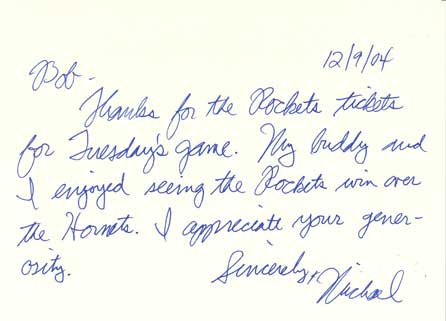 12/9/04
Bob -
Thanks for the Rockets tickets
for Tuesday's game. My buddy and
I enjoyed seeing the Rockets win over
the Hornets. I appreciate your gener-
osity.
Sincerely,
Michael